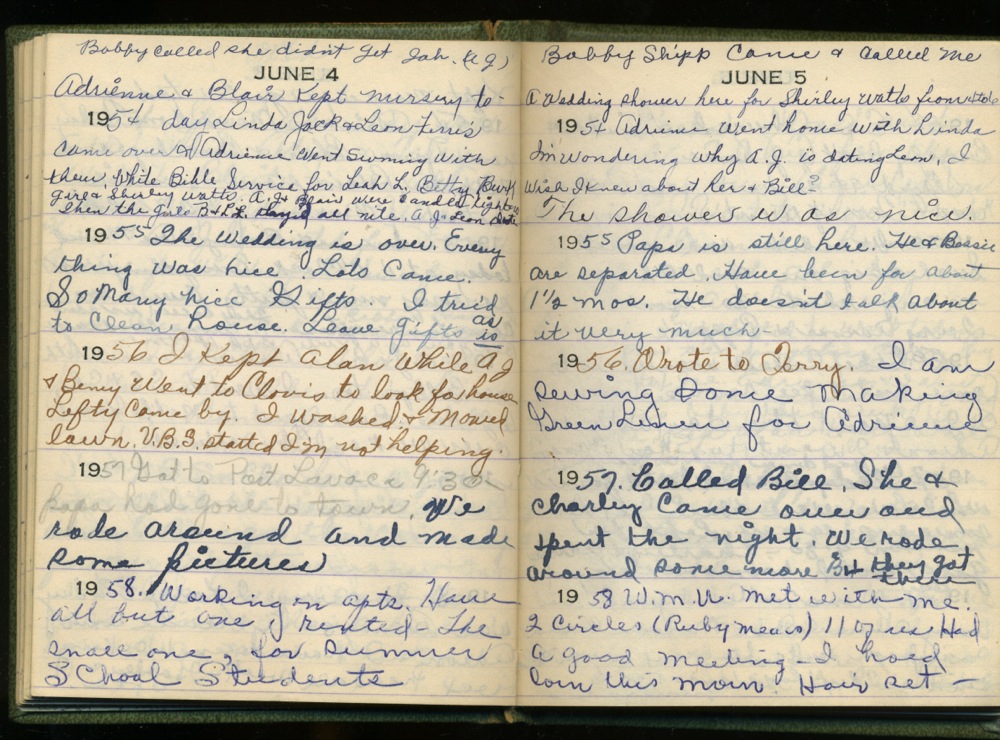 Bobby called she didn't get Job. (A J)
JUNE 4
Adrienne & Blair Kept nursery to-
1954 day Linda Jack & Leon Ferris
came over & Adrienne Went Swimmig With
them. White Bible Service for Leah L. Bettsy,
Girl & Shirley Watts. A.J. & Blair were candle lighters
Then the girls B & L.L. stayed all nite. A.J. & Leon date
1955 The wedding is over. Every
thing was nice. Lots Came.
So Many nice Gifts. I tried
to Clean house. Leave gifts as
is
1956 I Kept Alan While A J
& Benny Went to Clovis to look for house
Lefty Came by. I Washed & Mowed
lawn. V.B.S. started I'm not helping.
1957 Got to Port Lavaca 9:30
papa had gone to town. We
rode around and made
some pictures
1958. Working on apts. Have
all but one rented - The
small one, for summer
School Students
Bobby Shipp Came & Called Me
JUNE 5
A Wedding shower here for Shirley Watts from
1954 Adrienne Went home With Linda
I'm Wondering Why A.J. is dating Leon, I
Wish I Knew about her & Bill?
The shower was nice.
1955 Papa is still here. He & Bessie
are separated. Have been for about
1½ mos. He doesn't talk about
it very much -
1956. Wrote to Terry. I am
sewing some making
Green Linen for Adrienne
1957. Called Bill. She &
Charley Came over and
spent the night. We rode
around some more B4 they got
there
1958 W.M.U. met with me.
2 Circles (Ruby means) 11 of us Had
a good meeting - I hoed
corn this morn. Hair set -